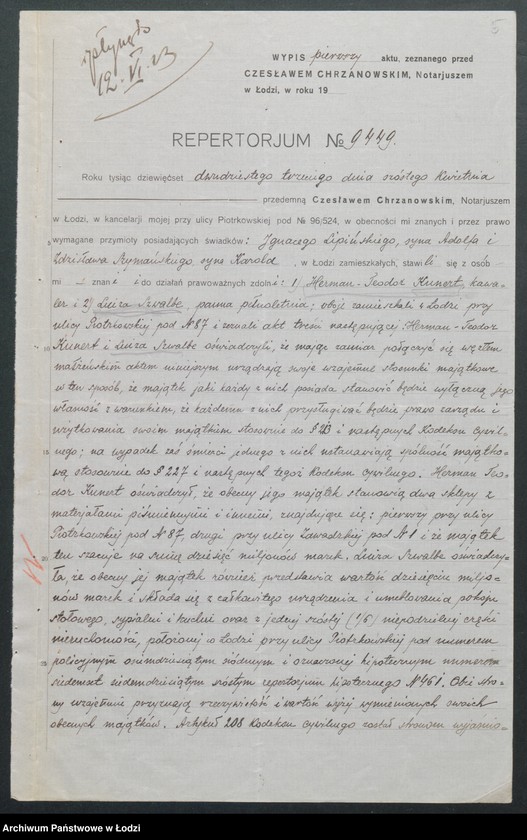 wpłynęło
12. VI. 23
5
WYPIS pierwszy aktu, zeznanego przed
CZESŁAWEM CHRZANOWSKIM, Notarjuszem
w Łodzi, w roku 19
REPERTORJUM № 9449.
Roku tysiąc dziewięćset dwudziestego trzeciego dnia szóstego kwietnia
przedemną Czesławem Chrzanowskim, Notarjuszem
w Łodzi, w kancelarji mojej przy ulicy Piotrkowskiej pod № 96/524, w obecności mi znanych i przez prawo
wymagane przymioty posiadających świadków: Ignacego Lipińskiego, syna Adolfa i
Zdzisława Szymańskiego syna Karola, w Łodzi zamieszkałych, stawili się z osób
mi znani i do działań prawoważnych zdolni: 1) Herman-Teodor Kunert, kawa-
ler i 2) Luiza Szwalbe, panna pełnoletnia; oboje zamieszkali w Łodzi przy
ulicy Piotrkowskiej pod N 87 i zeznali akt treści następującej: Herman-Teodor
10 Kunert i Luiza Szwalbe oświadczyli, że mając zamiar połączyć się węzłem
małżeńskim aktem niniejszym urządzają swoje wzajemne stosunki majątkowe
w ten sposób, że majątek jaki każdy z nich posiada stanowić będzie wyłączną jego
własność z warunkiem, że każdemu z nich przysługiwać będzie prawo zarządu i
użytkowania swoim majątkiem stosownie do § i następnych Kodeksu Cywil-
15 nego; na wypadek zaś śmierci jednego z nich ustanawiają spólność majątko-
wą stosownie do § 227 i następnych tegoż Kodeksu Cywilnego. Herman Teo-
dor Kunert oświadczył, że obecny jego majątek stanowią dwa sklepy z
materjałami piśmiennymi i innemi, znajdujące się: pierwszy przy ulicy
Piotrkowskiej pod N 87, drugi przy ulicy Zawadzkiej pod N 1 i że majątek
20 ten szacuje na sumę dziesięć miljonów marek. Luiza Szwalbe oświadczy-
ła, że obecny jej majątek również przedstawia wartość dziesięciu miljo-
nów marek i składa się z całkowitego urządzenia i umeblowania pokoju
stołowego, sypialni i kuchni oraz z jednej szóstej (1/6) niepodzielnej części
nieruchomości, położonej w Łodzi przy ulicy Piotrkowskiej pod numerem
25 policyjnym osiemdziesiątym siódmym i oznaczonej hipotecznym numerem
siedemset siedemdziesiątym szóstym repertorjum hipotecznego N 461. Obie stro-
ny wzajemnie przyznają rzeczywistość i wartość wyżej wymienionych swoich
obecnych majątków. Artykuł 208 Kodeksu Cywilnego został stronom wyjaśnio-
Archiwum Państwowe w Łodzi